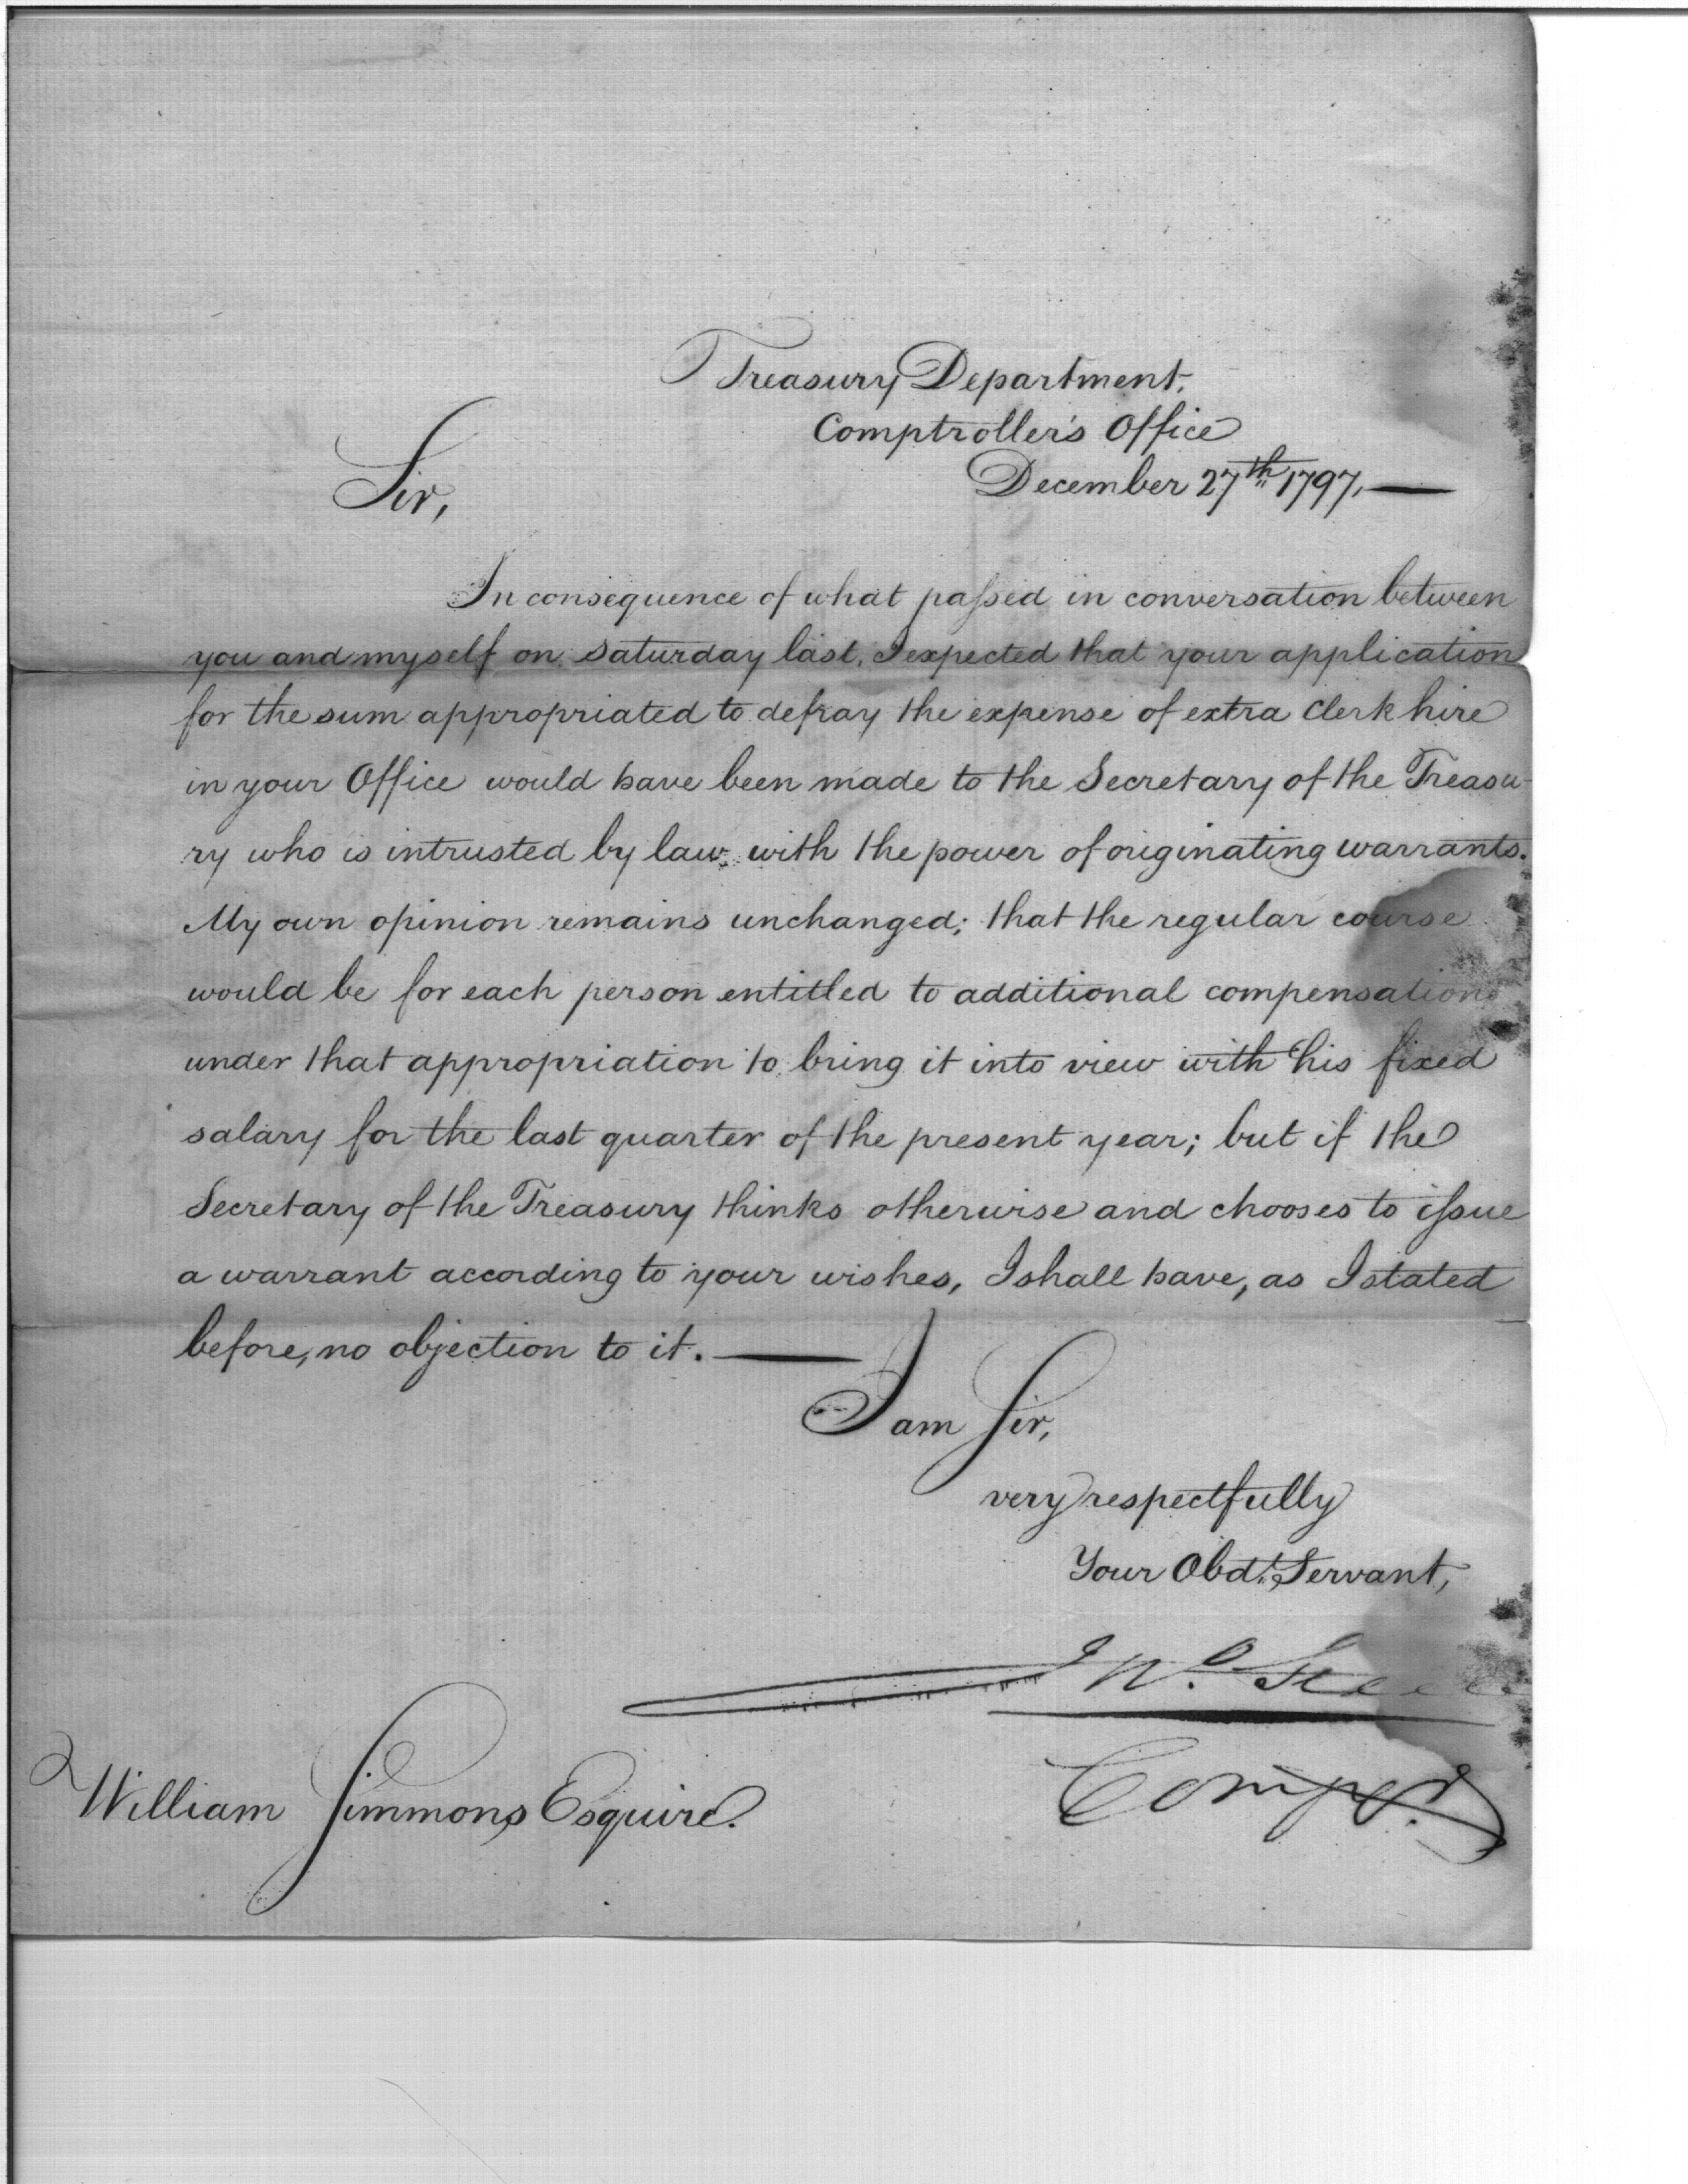 Treasury Department,
Comptroller's Office
December 27th 1797,—
Sir,
In consequence of what passed in conversation between
you and myself on Saturday last, I expected that your application
for the sum appropriated to defray the expense of extra Clerk hire
in your Office would have been made to the Secretary of the Treasu-
ry who is intrusted by law with the power of originating warrants.
My own opinion remains unchanged; that the regular course
would be for each person entitled to additional compensation
under that appropriation to bring it into view with his fixed
salary for the last quarter of the present year; but if the
Secretary of the Treasury thinks otherwise and chooses to issue
a warrant according to your wishes, I shall have, as I stated
before, no objection to it.—
I am Sir,
very respectfully
Your Obdt. Servant,
Jno. Steele
Compr.
William Simmons Esquire.